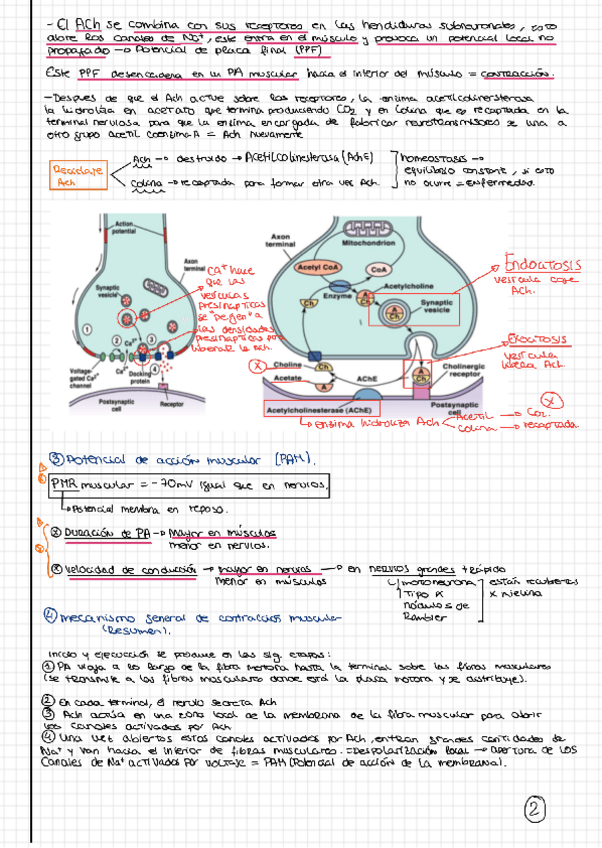 - El ACh se combina con sus receptores en las hendiduras subneuronales, esto
abre los canales de Na+, este entra en el músculo y provoca un potencial local no
propagado → Potencial de placa final (PPF)
Este PPF desencadena en un PA muscular hacia el interior del músculo = contracción.
- Después de que el Ach actue sobre los receptores, la enzima acetilcolinesterasa
la hidroliza en acetato que termina produciendo CO2 y en Colina que es recaptada en la
terminal nerviosa para que la enzima encargada de fabricar neurotransmisores se una a
otro grupo acetil coenzima A = Ach nuevamente
Reciclaje
Ach
Ach → destruido → Acetilcolinesterasa (AchE)
Colina → recaptada para formar otra vez Ach.
homeostasis →
equilibrio constante, si esto
no ocurre = Enfermedad.
Action
potential
Axon
terminal
Synaptic
vesicle
1
2
Ca2+
3
4
Voltage-
gated Ca2+
channel
Ca2+
Docking
protein
Postsynaptic
cell
Receptor
Ca+ hace
que las
vesículas
presinapticas
se "peguen" a
las densidades
presinapticas para
liberarse la Ach.
Axon
terminal
Mitochondrion
Acetyl CoA
CoA
Acetylcholine
Enzyme
A
Ch
Ch
A
Ch
Synaptic
vesicle
Choline
Acetate
Ch
A
AChE
A
Ch
Cholinergic
receptor
Acetylcholinesterase (AChE)
Postsynaptic
cell
Endocitosis
vesícula coge
Ach.
Exocitosis
vesícula
libera Ach.
enzima hidroliza Ach
Acetil → CO2.
Colina → recaptada
③ Potencial de acción muscular (PAM).
PMR muscular = -70mV igual que en nervios.
Potencial membrana en reposo.
Duración de PA → Mayor en músculos
menor en nervios.
Velocidad de conducción → mayor en nervios → en nervios grandes + rápido
menor en músculos
motoneurona
Tipo A
nódulos de
Ranvier
están recubiertas
x mielina
④ mecanismo general de contracción muscular
(Resumen).
Inicio y ejecución se produce en las sig. etapas:
① PA viaja a lo largo de la fibra motora hasta la terminal sobre las fibras musculares
(se transmite a las fibras musculares donde está la placa motora y se distribuye).
② En cada terminal, el nervio secreta Ach
③ Ach actúa en una zona local de la membrana de la fibra muscular para abrir
los canales activados por Ach
④ Una vez abiertos estos canales activados por Ach, entran grandes cantidades de
Na+ y van hacia el interior de fibras musculares. = Despolarización local → apertura de los
canales de Na+ activados por voltaje = PAM (Potencial de acción de la membrana).
2